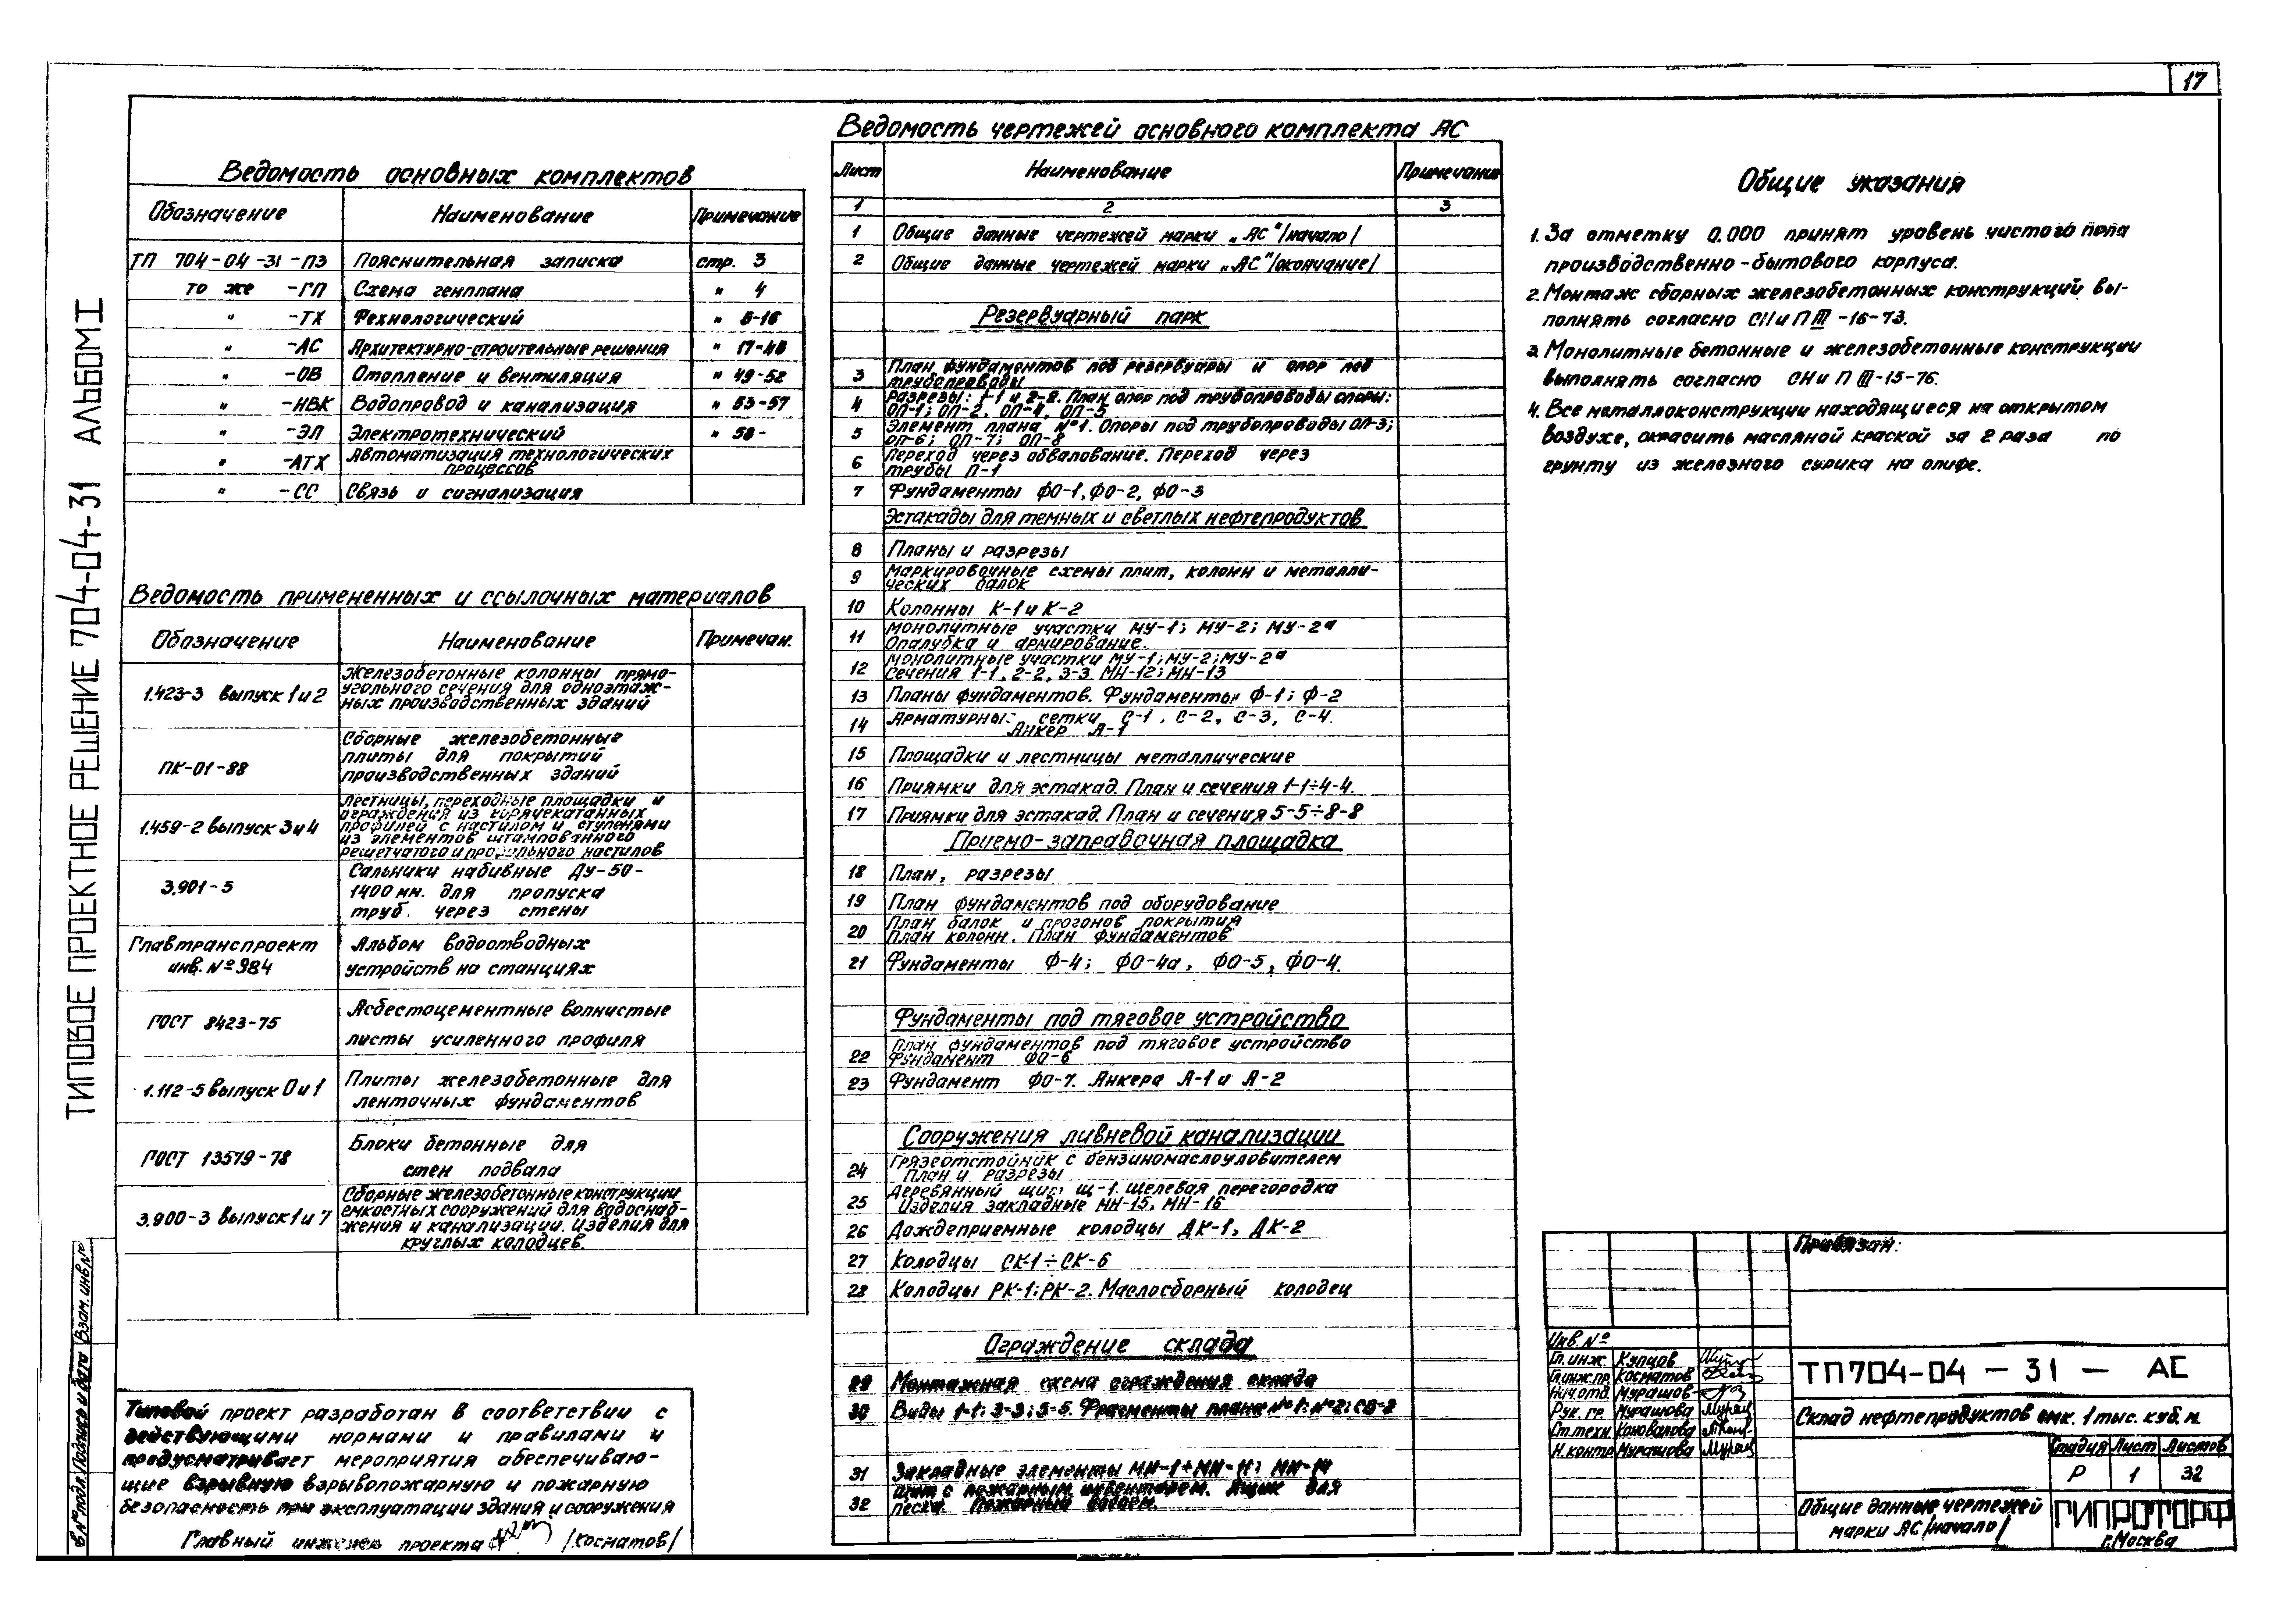 17
ТИПОВОЕ ПРОЕКТНОЕ РЕШЕНИЕ 704-04-31 АЛЬБОМ I
Ведомость основных комплектов
Обозначение Наименование Примечание
ТП 704-04-31-ПЗ Пояснительная записка стр. 3
то же -ГП Схема генплана " 4
" -ТХ Технологический " 5-16
" -АС Архитектурно-строительные решения " 17-48
" -ОВ Отопление и вентиляция " 49-52
" -НВК Водопровод и канализация " 53-57
" -ЭЛ Электротехнический " 58-
" -АТХ Автоматизация технологических
процессов
" -СС Связь и сигнализация
Ведомость примененных и ссылочных материалов
Обозначение Наименование Примечан.
1.423-3 выпуск 1 и 2 Железобетонные колонны прямо-
угольного сечения для одноэтаж-
ных производственных зданий
ПК-01-88 Сборные железобетонные
плиты для покрытий
производственных зданий
1.459-2 выпуск 3 и 4 Лестницы, переходные площадки и
ограждения из горячекатанных
профилей с настилом и ступенями
из элементов штампованного
решетчатого и настилов
3.901-5 Сальники набивные Ду-50-
1400 мм. для пропуска
труб. через стены
Главтранспроект
инв. № 984 Альбом водоотводных
устройств на станциях
ГОСТ 8423-75 Асбестоцементные волнистые
листы усиленного профиля
1.112-5 выпуск 0 и 1 Плиты железобетонные для
ленточных фундаментов
ГОСТ 13579-78 Блоки бетонные для
стен подвала
3.900-3 выпуск 1 и 7 Сборные железобетонные конструкции
емкостных сооружений для водоснаб-
жения и канализации. Изделия для
круглых колодцев.
Типовой проект разработан в соответствии с
действующими нормами и правилами и
предусматривает мероприятия обеспечиваю-
щие взрывную взрывопожарную и пожарную
безопасность при эксплуатации здания и сооружения
Главный инженер проекта /Косматов/
Ведомость чертежей основного комплекта АС
Лист Наименование Примечание
1 2 3
1 Общие данные чертежей марки „АС" /начало/
2 Общие данные чертежей марки „АС" /окончание/
Резервуарный парк
3 План фундаментов под резервуары и опор под
трубопроводы
4 Разрезы: 1-1 и 2-2. План опор под трубопроводы опоры:
ОП-1; ОП-2, ОП-4, ОП-5
5 Элемент плана №1. Опоры под трубопроводы ОП-3;
ОП-6; ОП-7; ОП-8
6 Переход через обвалование. Переход через
трубы П-1
7 Фундаменты ФО-1, ФО-2, ФО-3
Эстакады для темных и светлых нефтепродуктов
8 Планы и разрезы
9 Маркировочные схемы плит, колонн и металли-
ческих балок
10 Колонны К-1 и К-2
11 Монолитные участки МУ-1; МУ-2; МУ-2а
Опалубка и армирование.
12 Монолитные участки МУ-1; МУ-2; МУ-2а
Сечения 1-1, 2-2, 3-3. МН-12; МН-13
13 Планы фундаментов. Фундаменты Ф-1; Ф-2
14 Арматурные сетки С-1, С-2, С-3, С-4.
Анкер А-1
15 Площадки и лестницы металлические
16 Приямки для эстакад. План и сечения 1-1÷4-4.
17 Приямки для эстакад. План и сечения 5-5÷8-8
Приемо-заправочная площадка
18 План, разрезы
19 План фундаментов под оборудование
20 План балок и прогонов покрытия
План колонн. План фундаментов
21 Фундаменты Ф-4; ФО-4а, ФО-5, ФО-4.
Фундаменты под тяговое устройство
22 План фундаментов под тяговое устройство
Фундамент ФО-6
23 Фундамент ФО-7. Анкера А-1 и А-2
Сооружения ливневой канализации
24 Грязеотстойник с бензиномаслоуловителем
План и разрезы
25 Деревянный щит Щ-1. Щелевая перегородка
Изделия закладные МН-15, МН-16
26 Дождеприемные колодцы ДК-1, ДК-2
27 Колодцы СК-1÷СК-6
28 Колодцы РК-1; РК-2. Маслосборный колодец
Ограждение склада
29 Монтажная схема ограждения склада
30 Виды 1-1; 3-3; 5-5. Фрагменты плана №1; №2; СВ-2
31 Закладные элементы МН-1÷МН-11; МН-14
32 Щит с пожарным инвентарем. Ящик для
песка. Пожарный водоем.
Общие указания
1. За отметку 0.000 принят уровень чистого пола
производственно-бытового корпуса.
2. Монтаж сборных железобетонных конструкций вы-
полнять согласно СНиП III-16-73.
3. Монолитные бетонные и железобетонные конструкции
выполнять согласно СНиП III-15-76.
4. Все металлоконструкции находящиеся на открытом
воздухе, окрасить масляной краской за 2 раза по
грунту из железного сурика на олифе.
Привязан:
Инв. №
Гл. инж. Купцов
Гл. инж. пр. Косматов
Нач. отд. Мурашов
Рук. гр. Мурашова
Ст. техн. Коновалова
Н. контр. Мурашова
ТП 704-04-31-АС
Склад нефтепродуктов емк. 1 тыс. куб. м.
Стадия Лист Листов
Р 1 32
Общие данные чертежей
марки АС /начало/
ГИПРОТОРФ
г. Москва
Инв. № подл. Подпись и дата Взам. инв. №